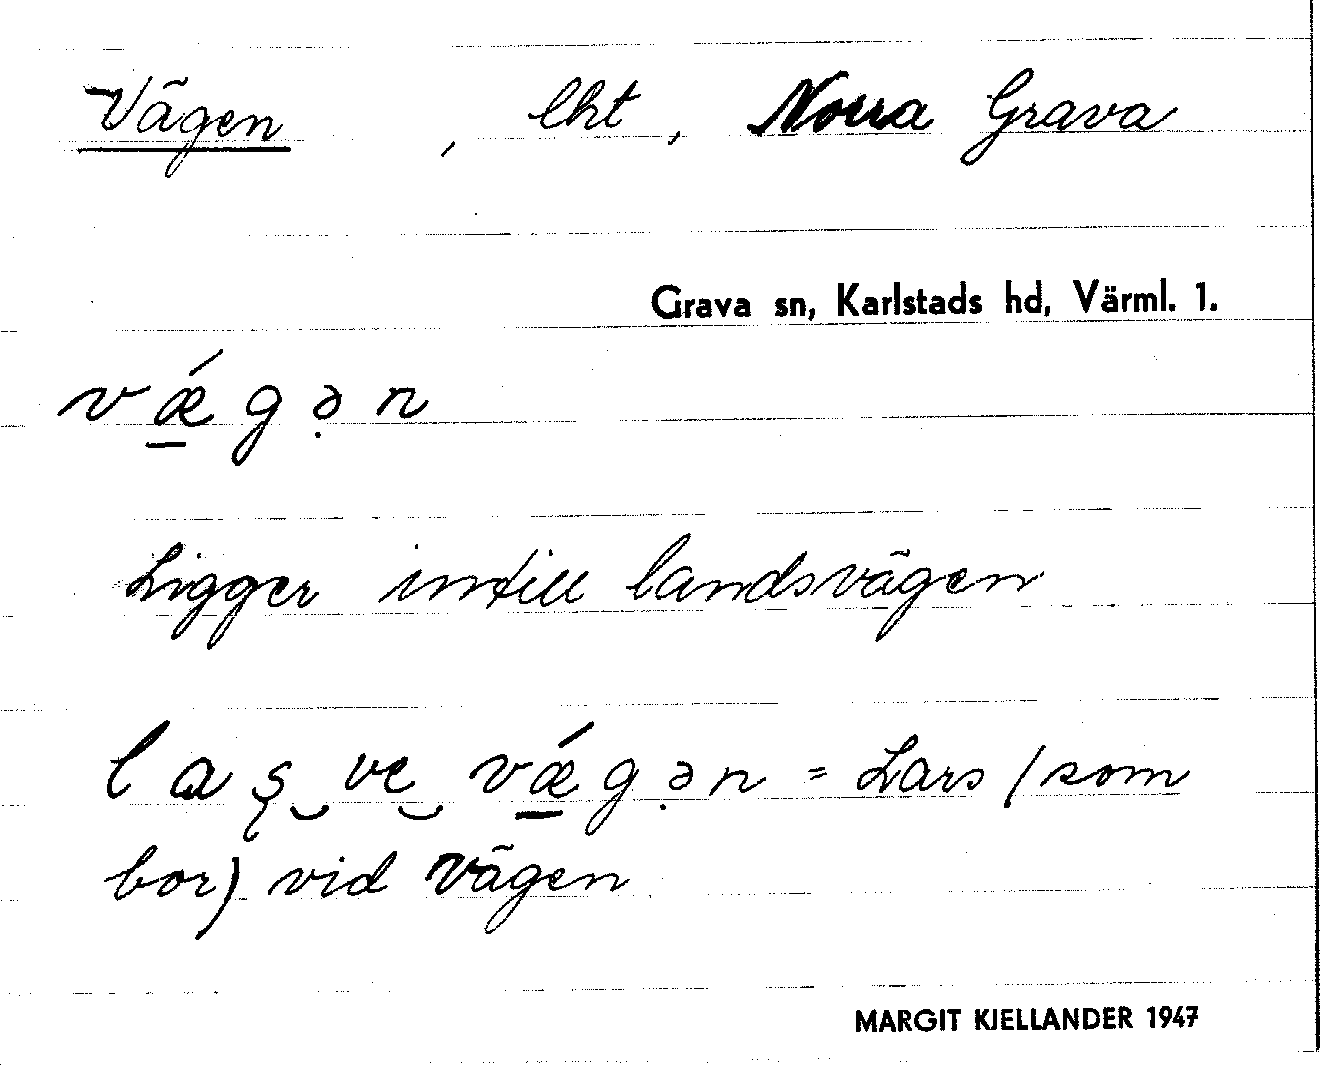 Vägen , lht , Norra Grava
Grava sn, Karlstads hd, Värml. 1.
vǽ̠gə̣n
Ligger intill landsvägen
laʂ‿ve‿vǽ̠gə̣n = Lars (som
bor) vid Vägen
MARGIT KJELLANDER 1947